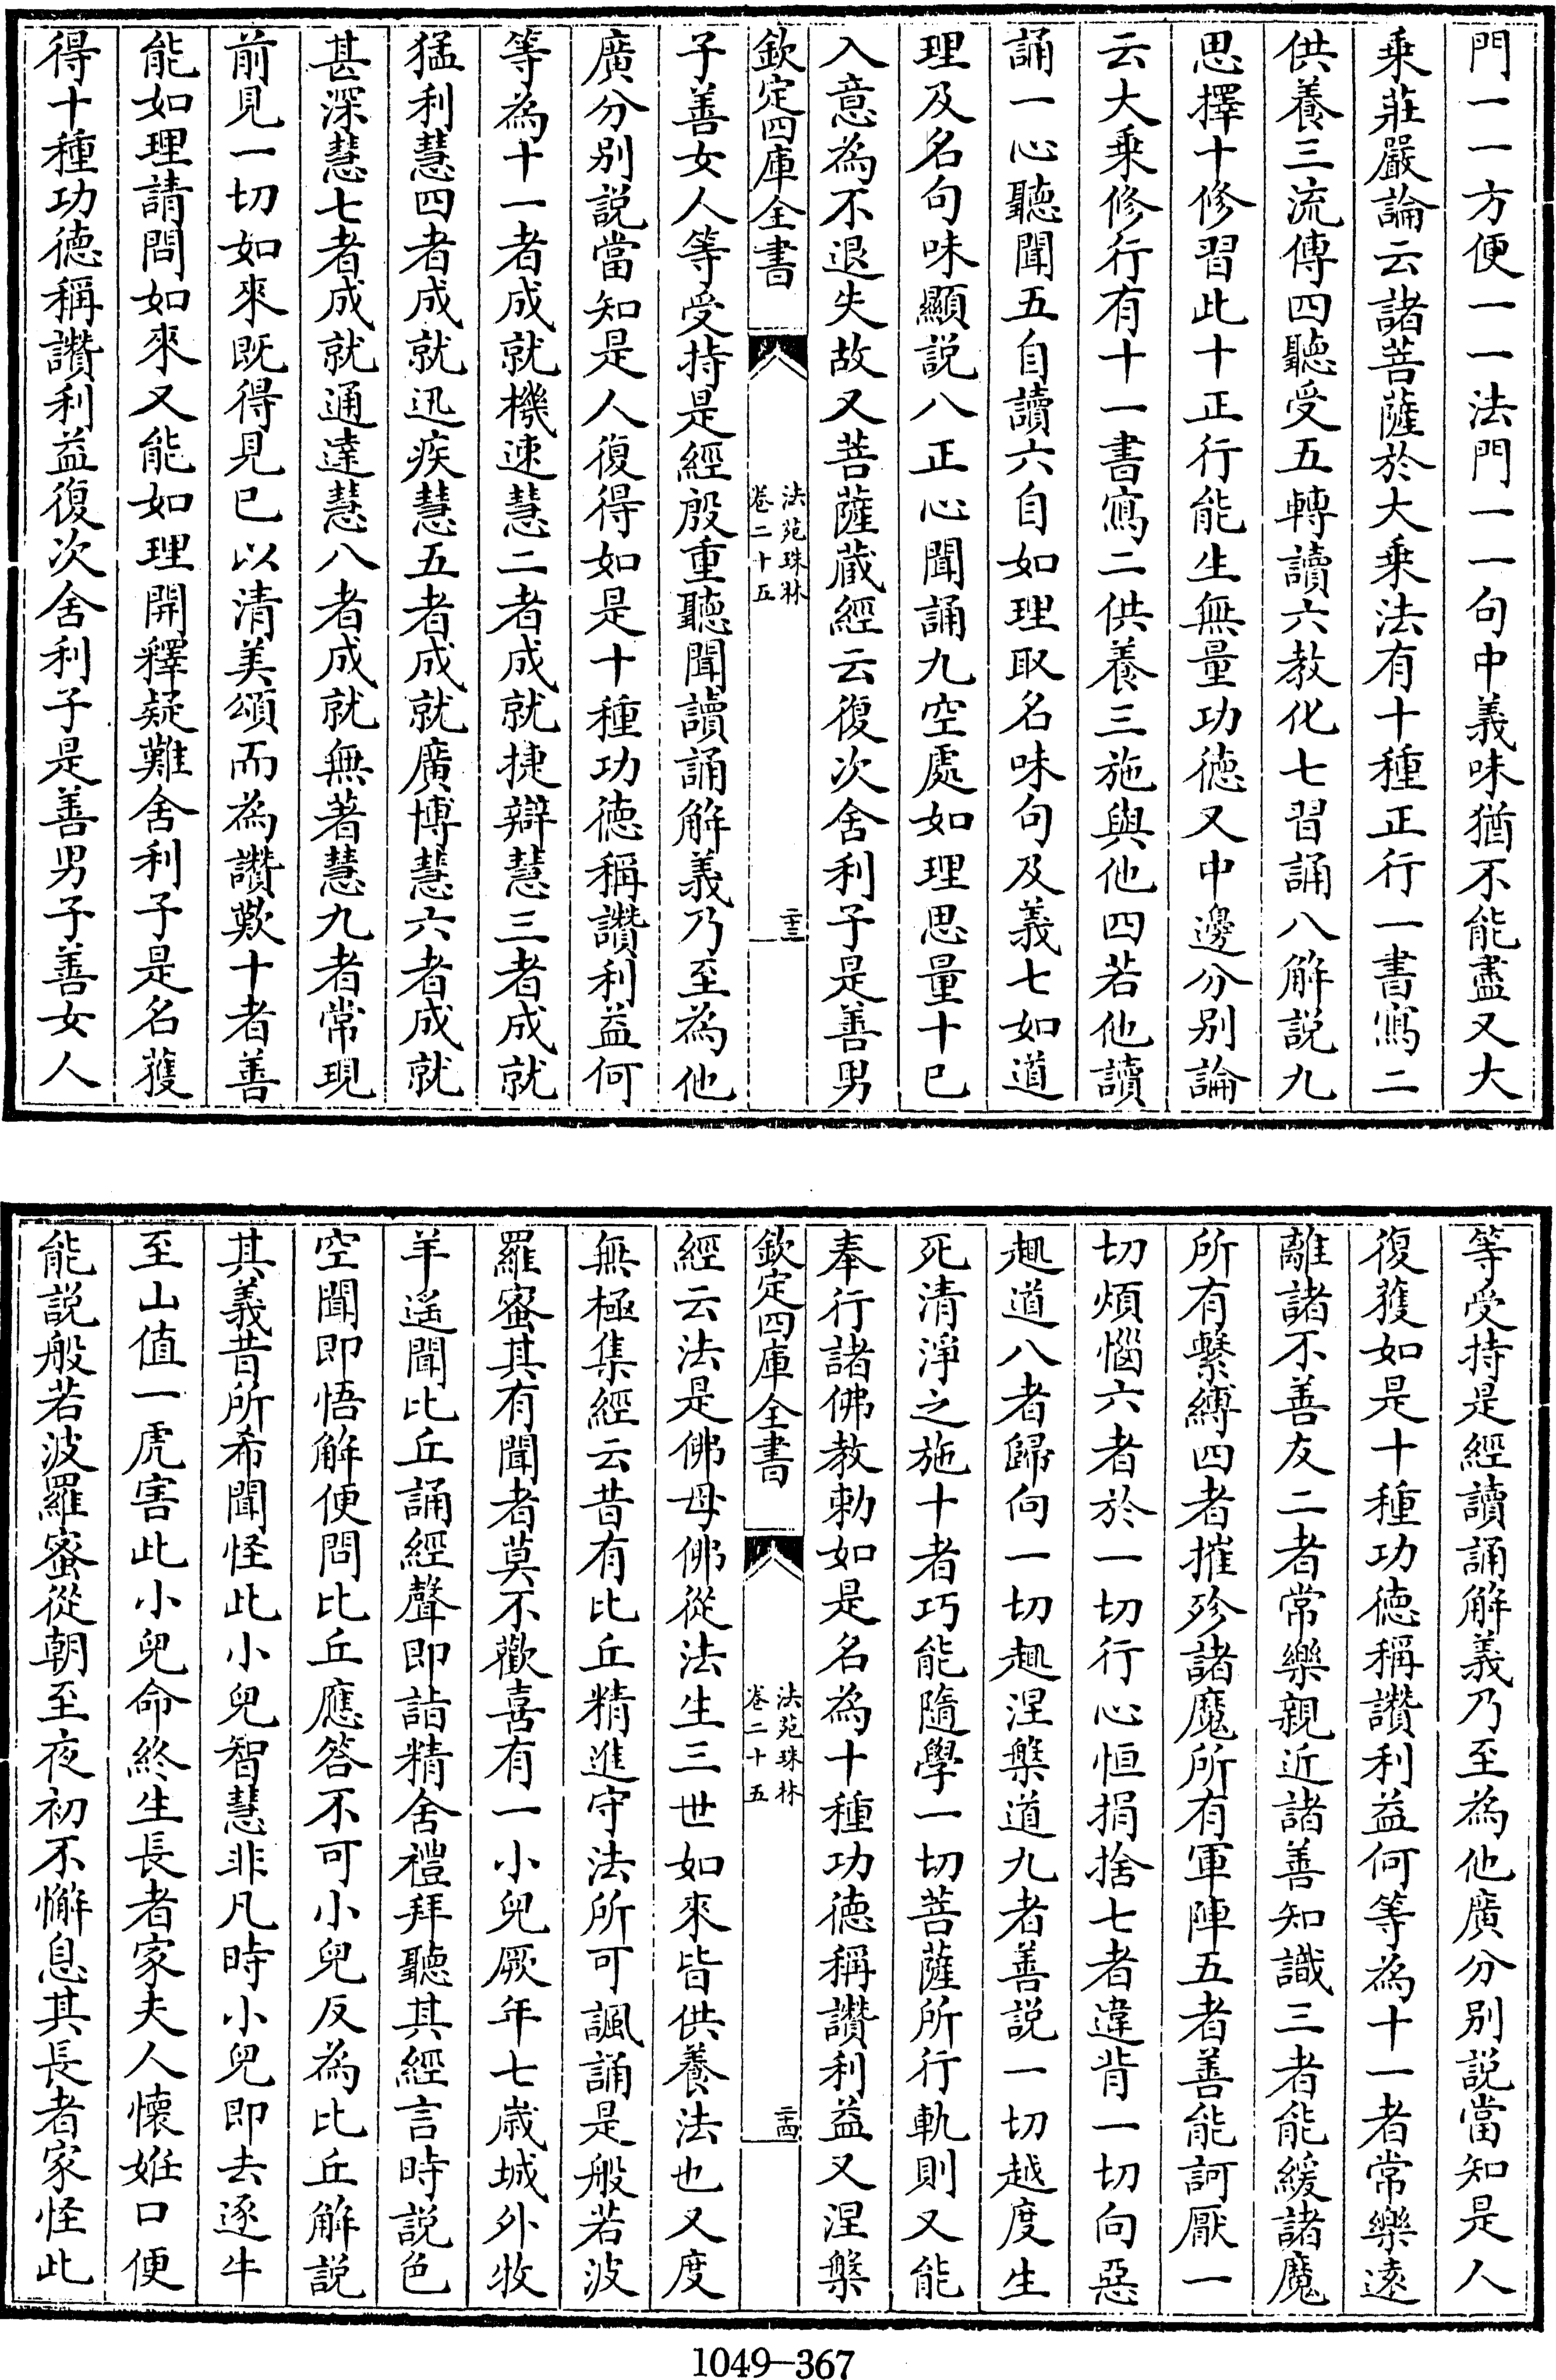 門一一方便一一法門一一句中義味猶不能盡又大
乘莊嚴論云諸菩薩於大乘法有十種正行一書寫二
供養三流傳四聽受五轉讀六教化七習誦八解説九
思擇十修習此十正行能生無量功徳又中邊分别論
云大乘修行有十一書寫二供養三施與他四若他讀
誦一心聽聞五自讀六自如理取名味句及義七如道
理及名句味顯説八正心聞誦九空處如理思量十已
入意為不退失故又菩薩藏經云復次舍利子是善男
欽定四庫全書
法苑珠林
卷二十五
二十三
子善女人等受持是經殷重聽聞讀誦解義乃至為他
廣分别説當知是人復得如是十種功徳稱讚利益何
等為十一者成就機速慧二者成就捷辯慧三者成就
猛利慧四者成就迅疾慧五者成就廣博慧六者成就
甚深慧七者成就通達慧八者成就無著慧九者常現
前見一切如來既得見已以清美頌而為讚歎十者善
能如理請問如來又能如理開釋疑難舍利子是名獲
得十種功徳稱讚利益復次舍利子是善男子善女人
等受持是經讀誦解義乃至為他廣分别説當知是人
復獲如是十種功徳稱讚利益何等為十一者常樂逺
離諸不善友二者常樂親近諸善知識三者能緩諸魔
所有繫縛四者摧殄諸魔所有軍陣五者善能訶厭一
切煩惱六者於一切行心恒捐捨七者違背一切向惡
趣道八者歸向一切趣涅槃道九者善説一切越度生
死清淨之施十者巧能隨學一切菩薩所行軌則又能
奉行諸佛教勅如是名為十種功徳稱讚利益又涅槃
欽定四庫全書
法苑珠林
卷二十五
二十四
經云法是佛母佛從法生三世如來皆供養法也又度
無極集經云昔有比丘精進守法所可諷誦是般若波
羅蜜其有聞者莫不歡喜有一小兒厥年七歳城外牧
羊遥聞比丘誦經聲即詣精舍禮拜聽其經言時説色
空聞即悟解便問比丘應答不可小兒反為比丘解説
其義昔所希聞怪此小兒智慧非凡時小兒即去逐牛
至山值一虎害此小兒命終生長者家夫人懷姙口便
能説般若波羅蜜從朝至夜初不懈息其長者家怪此
1049-367